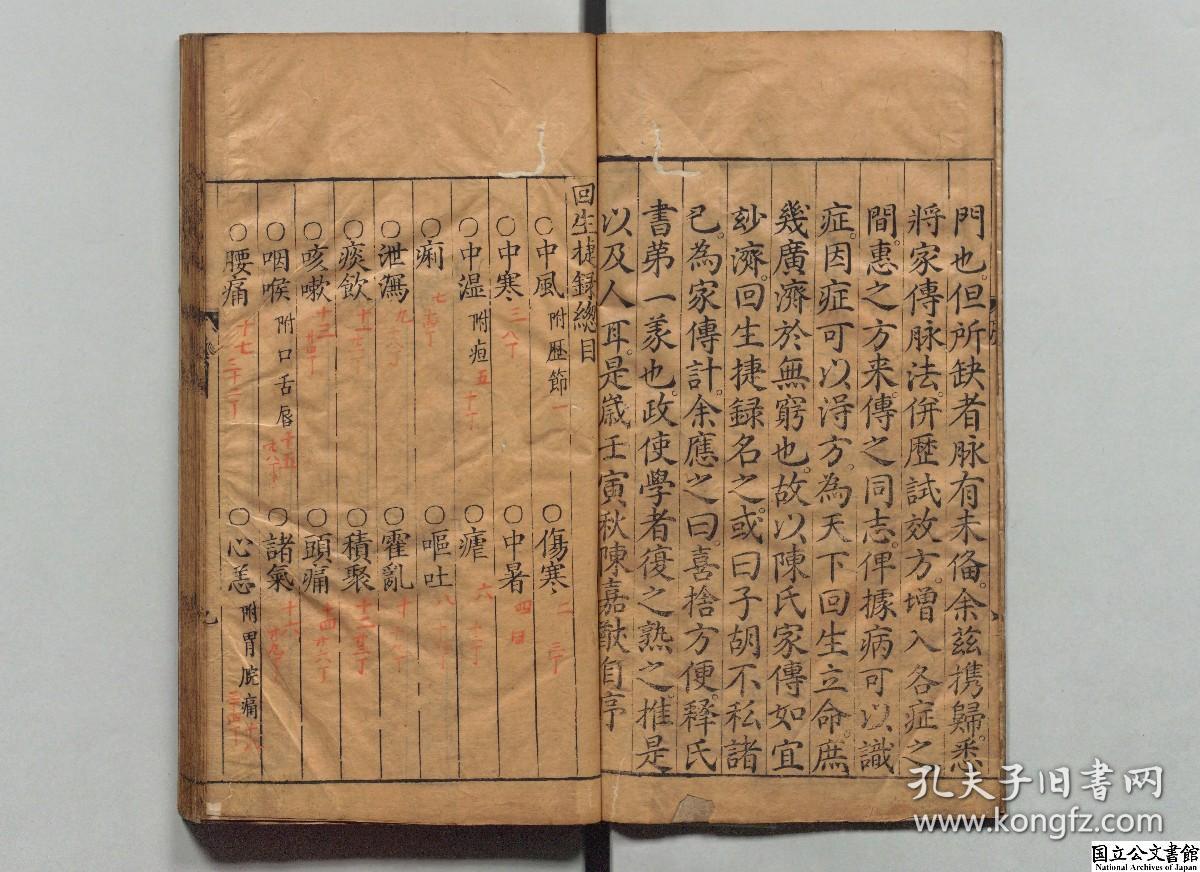 門也。但所缺者脉有未俻。余兹携歸。悉
將家傳脉法。併歷試效方。增入各症之
間。惠之方来。傳之同志。俾據病可以識
症。因症可以淂方。為天下回生立命。庶
幾廣濟於無窮也。故以陳氏家傳如宜
玅濟。回生捷録名之。或曰子胡不私諸
已。為家傳計。余應之曰。喜捨方便。釋氏
書第一義也。政使學者復之熟之。推是
以及人耳。是歲壬寅秋陳嘉猷自序
回生捷録總目
○中風 附歷節 一
○傷寒 二 三丁
○中寒 三 八丁
○中暑 四
○中湿 附疸 五 十丁
○瘧 六
○痢 七
○嘔吐 八
○泄瀉 九
○霍亂 十
○痰飲 十一
○積聚 十二
○咳嗽 十三
○頭痛 十四 廿六丁
○咽喉 附口舌唇 十五 廿八丁
○諸氣 十六 廿九丁
○腰痛 十七 三十二丁
○心恙 附胃脘痛 十八
孔夫子旧书网
www.kongfz.com
国立公文書館
National Archives of Japan